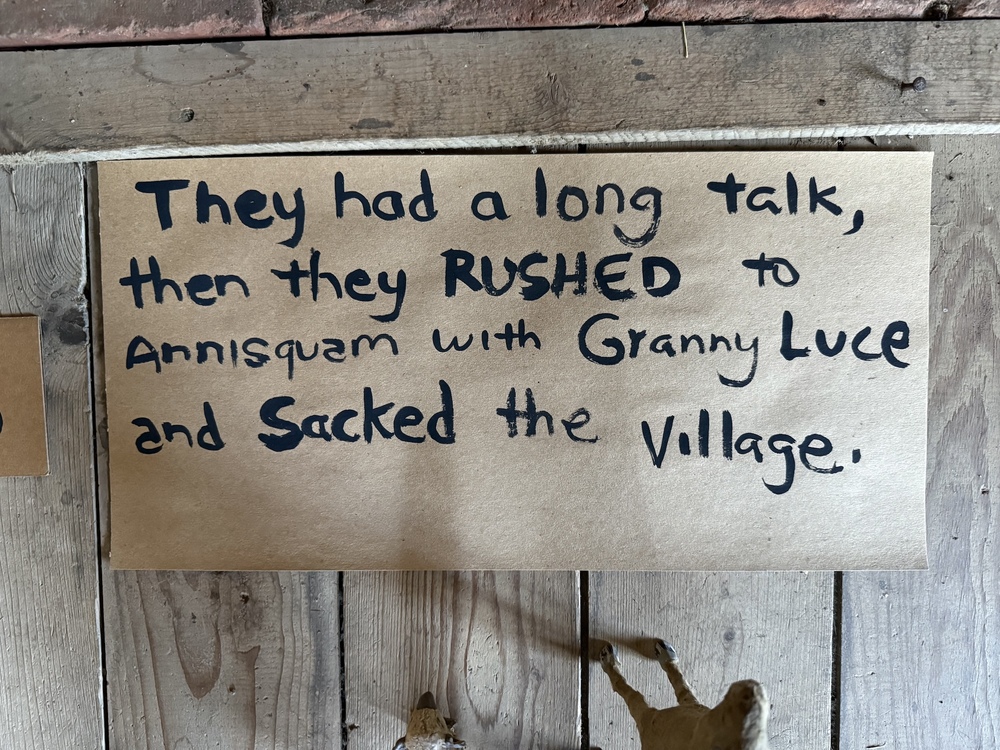 They had a long talk,
then they RUSHED to
Annisquam with Granny Luce
and Sacked the Village.